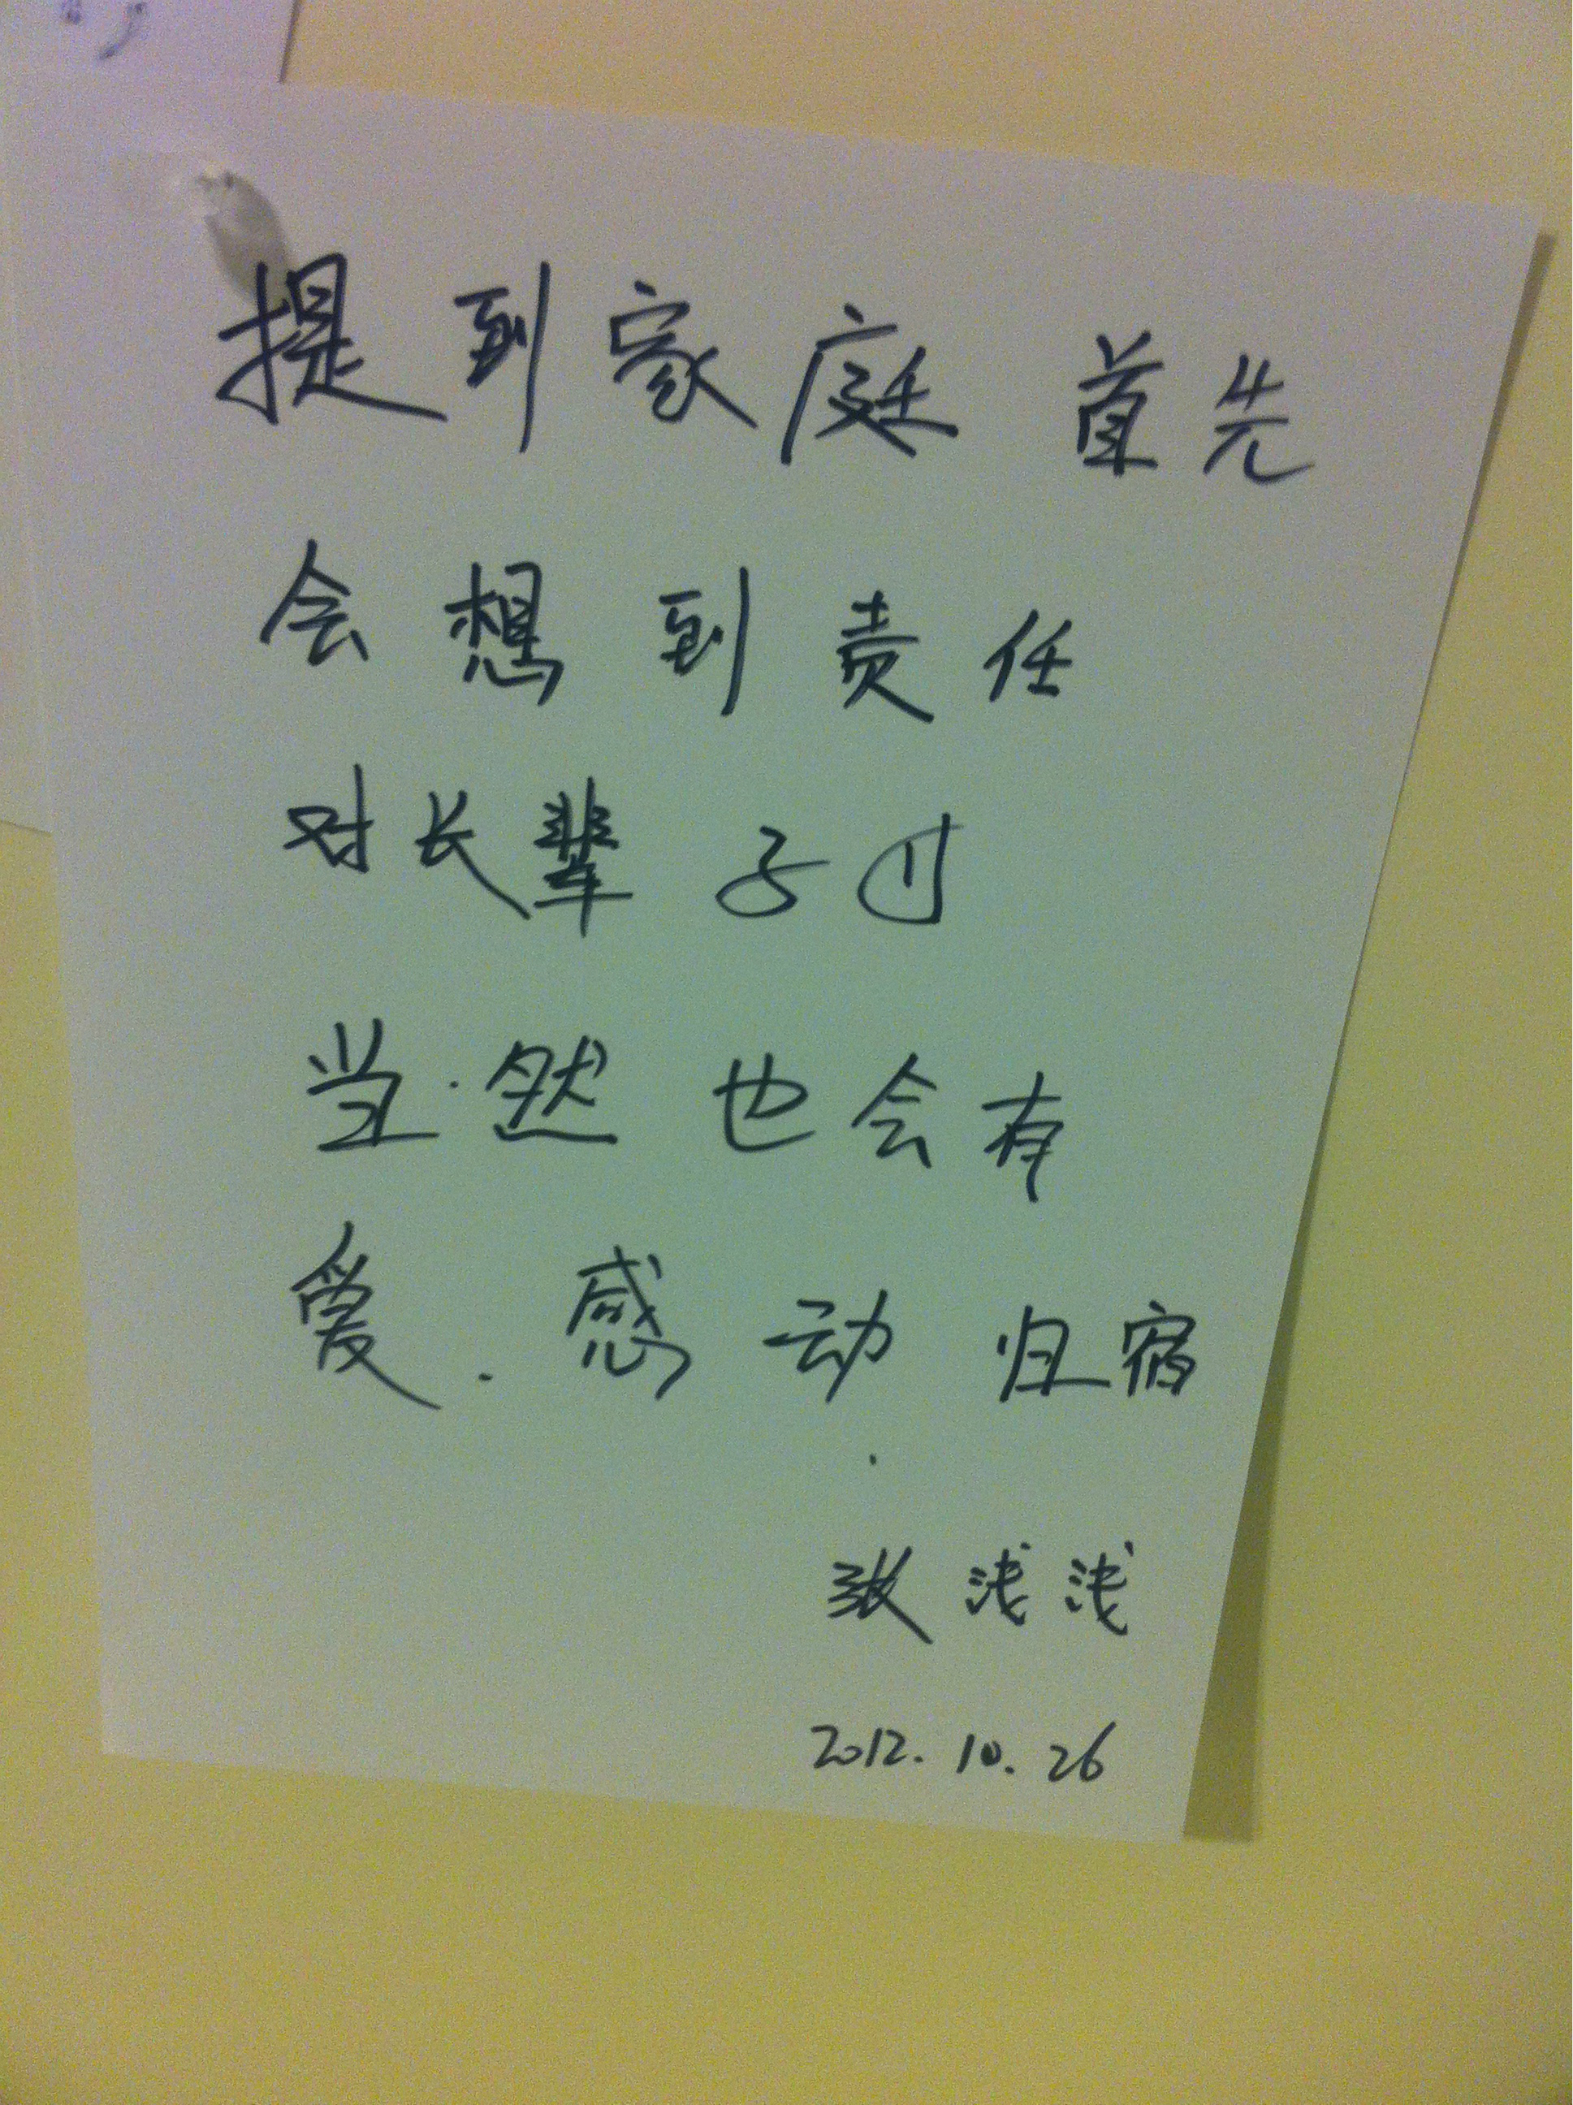 提到家庭 首先
会想到责任
对长辈 子女
当然也会有
爱.感动 归宿
张浅浅
2012.10.26